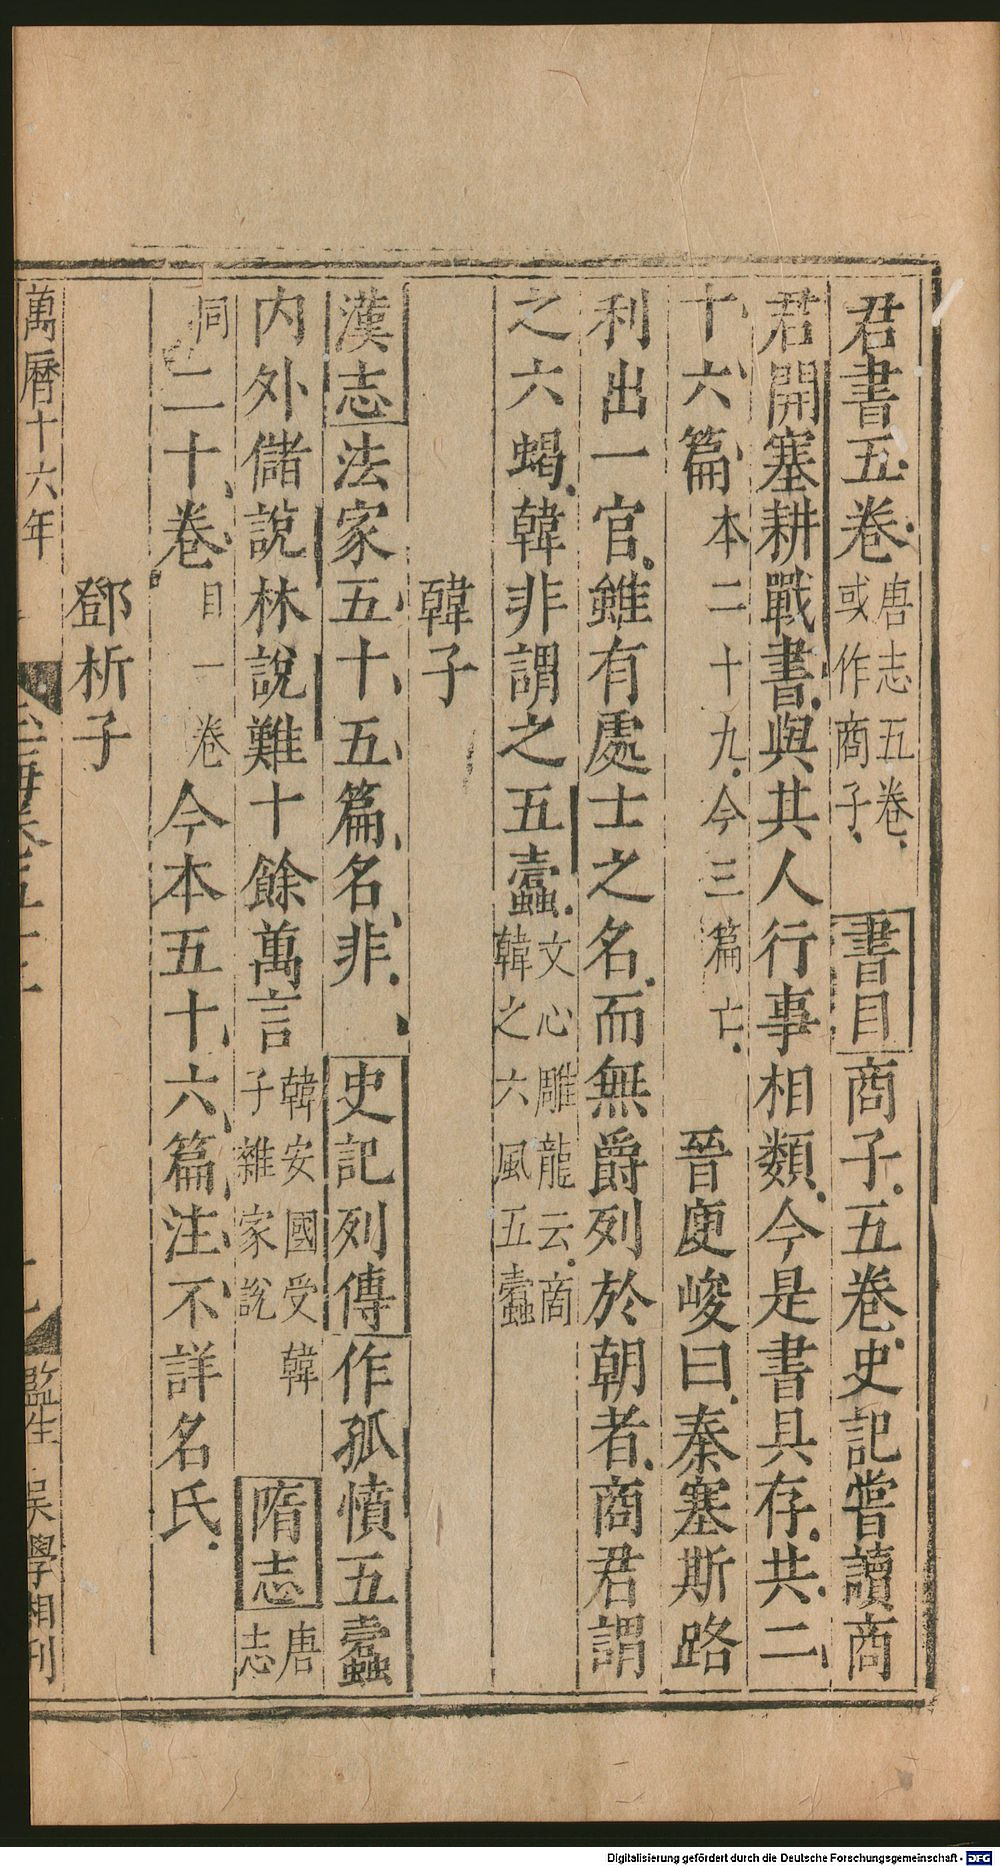 君書五卷唐志五卷或作商子書目商子五卷史記嘗讀商
君開塞耕戰書與其人行事相類今是書具存共二
十六篇本二十九今三篇亡晉庾峻曰秦塞斯路
利出一官雖有處士之名而無爵列於朝者商君謂
之六蝎韓非謂之五蠹文心雕龍云商韓之六風五蠹
韓子
漢志法家五十五篇名非史記列傳作孤憤五蠹
內外儲說林說難十餘萬言韓安國受韓子雜家說隋志唐志
同二十卷目一卷今本五十六篇注不詳名氏
鄧析子
萬曆十六年
監生吳學相刊
Digitalisierung gefördert durch die Deutsche Forschungsgemeinschaft - DFG